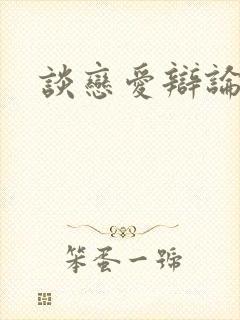 談戀愛辯論
笨蛋一號